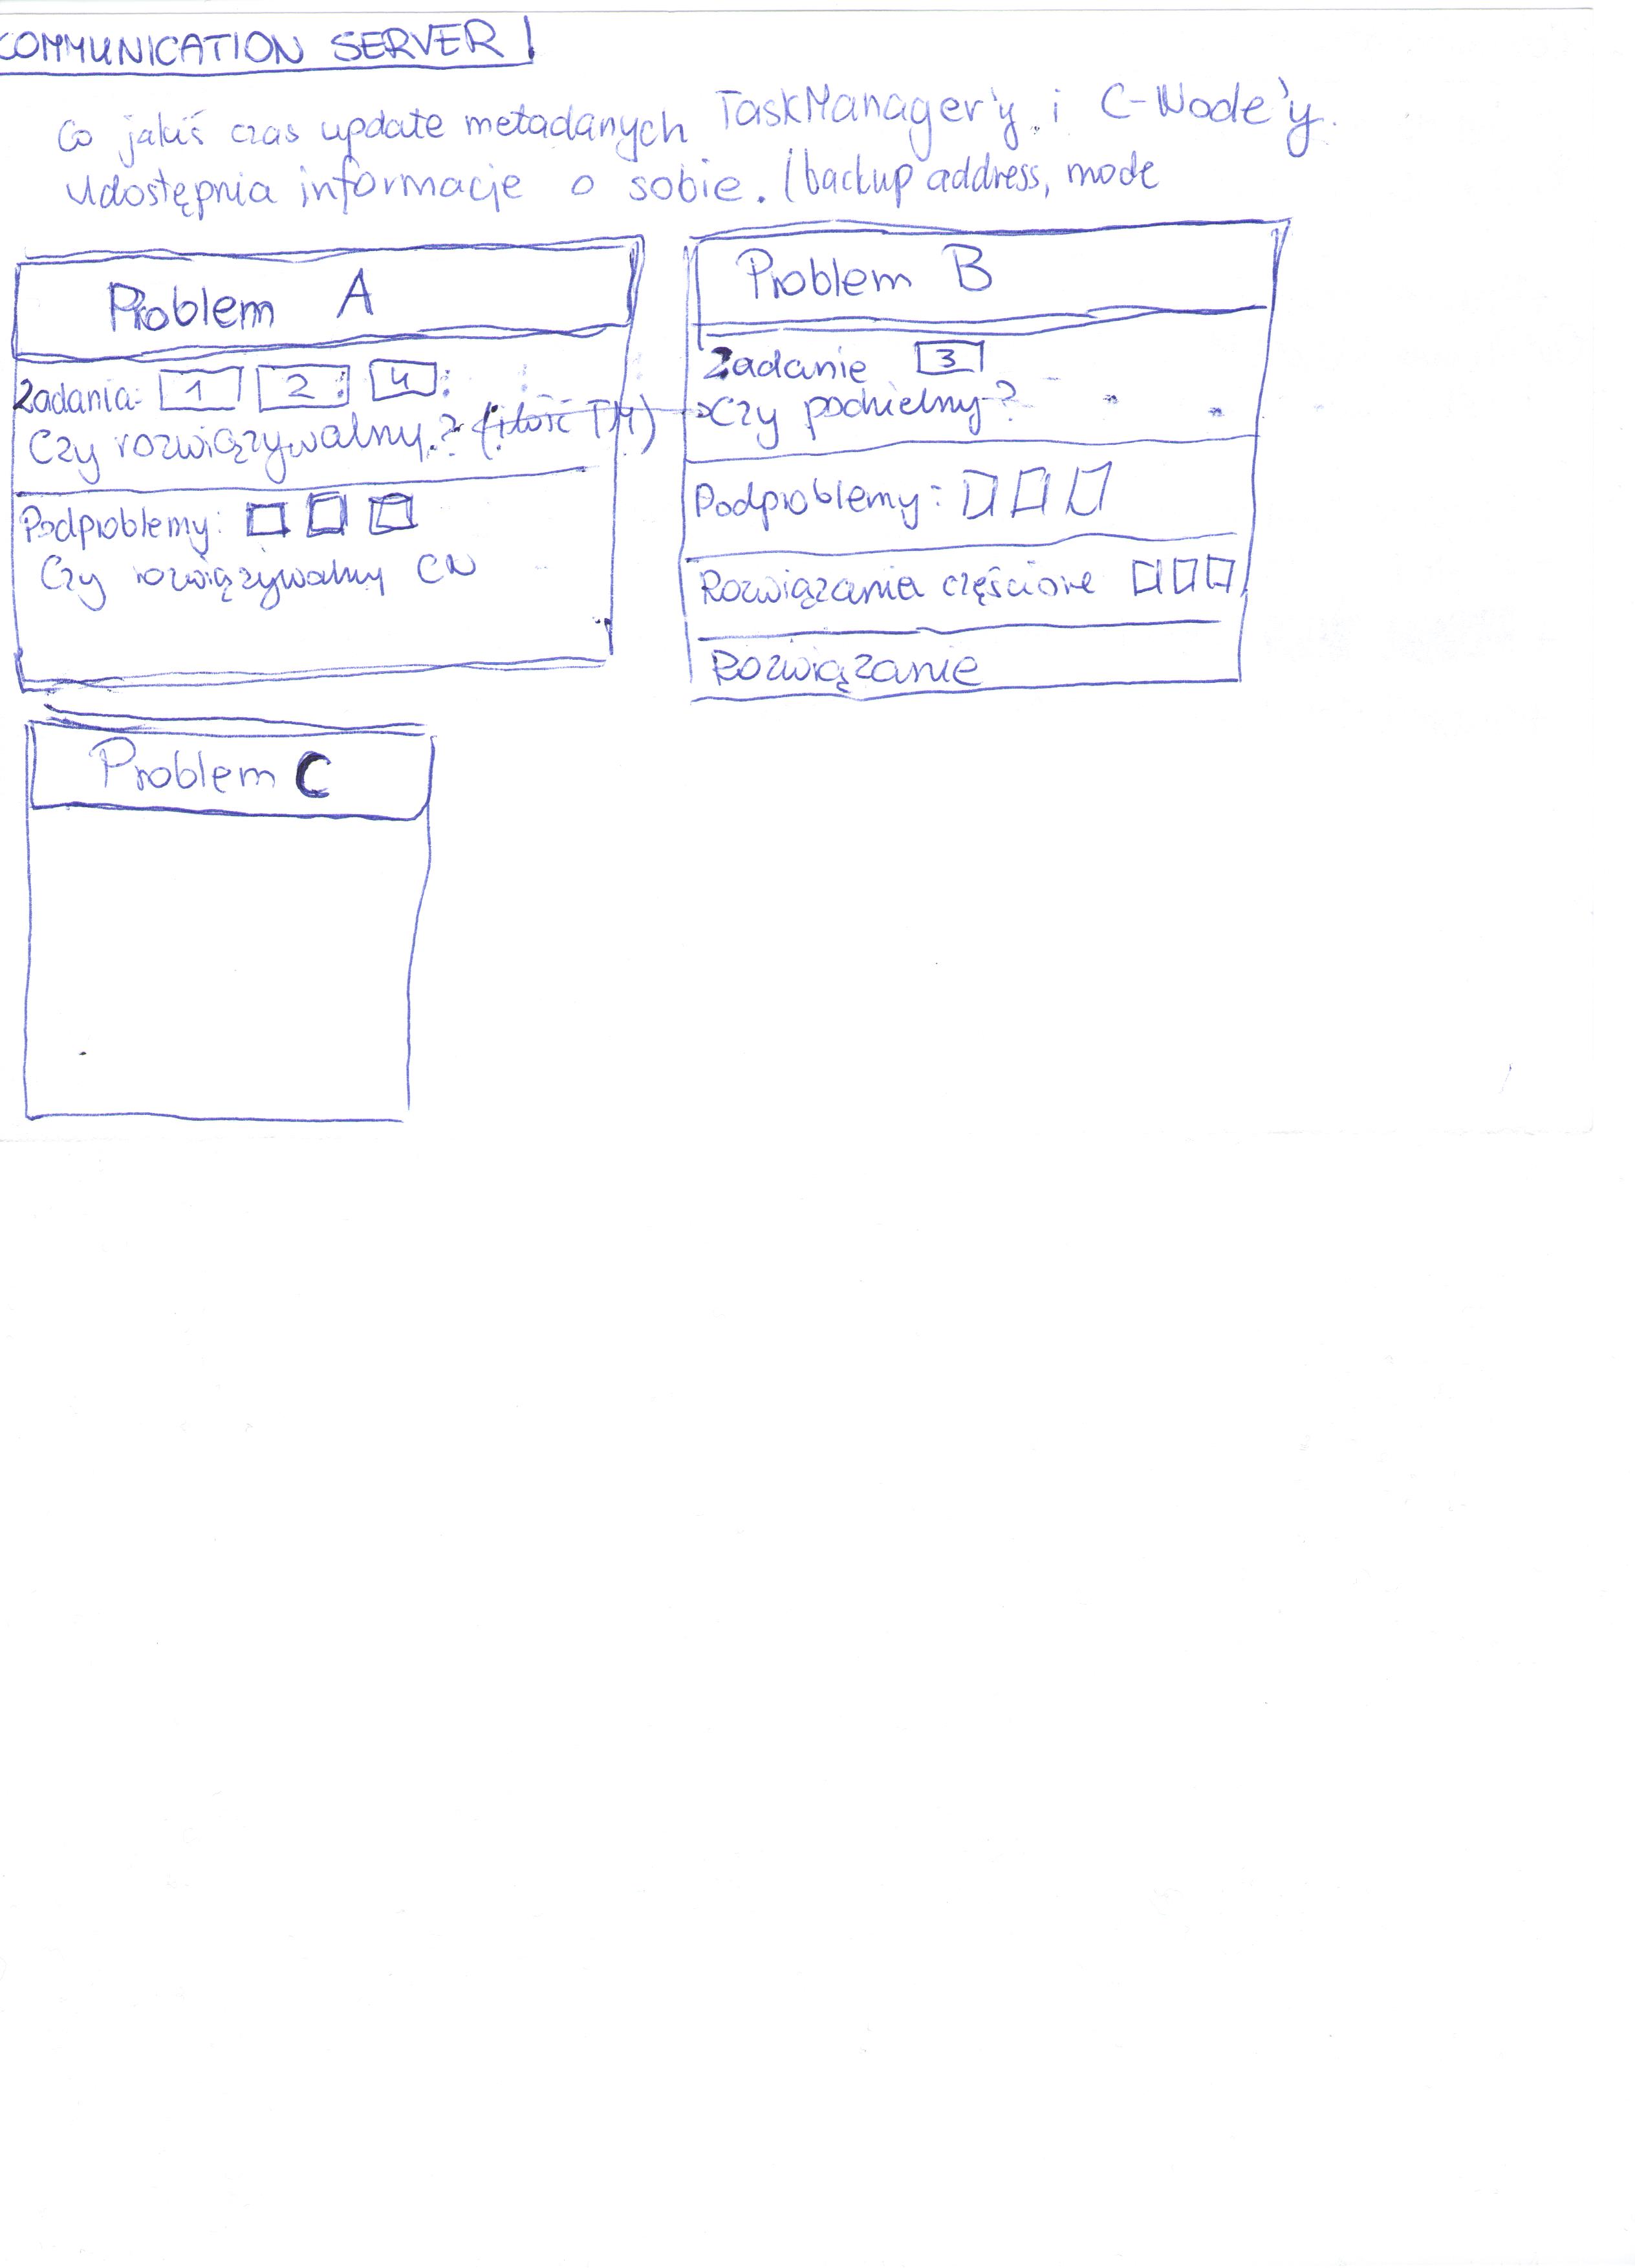 COMMUNICATION SERVER!
Co jakiś czas update metadanych TaskManager'y i C-Node'y.
Udostępnia informacje o sobie. (backup address, mode
Problem A
Zadania: 1 2 4
Czy rozwiązywalny? (ilość TM)
Podproblemy:
Czy rozwiązywalny CN
Problem B
Zadanie 3
Czy podzielny?
Podproblemy:
Rozwiązania częściowe
Rozwiązanie
Problem C